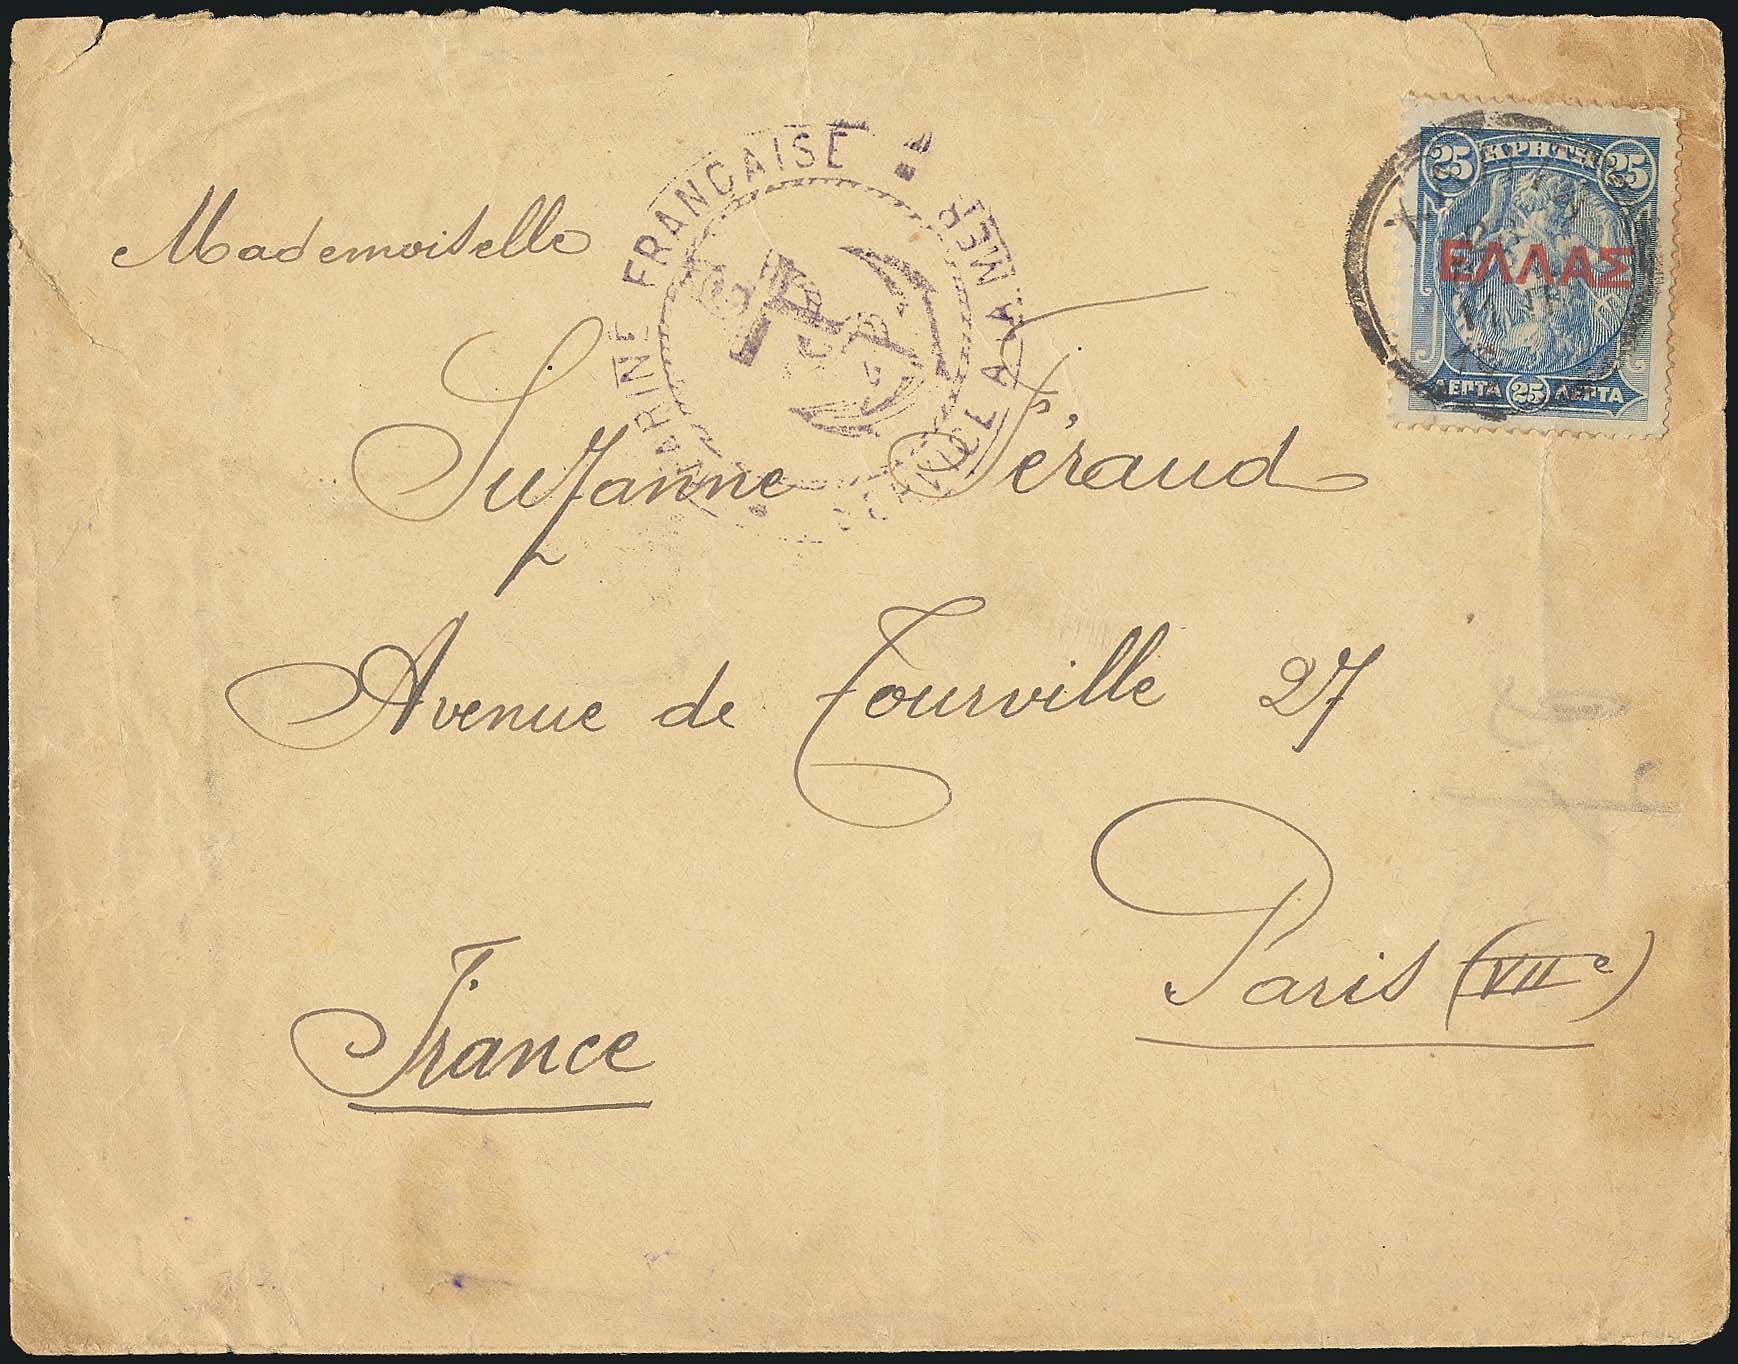 Mademoiselle
MARINE FRANÇAISE
SERVICE A LA MER
25 ΚΡΗΤΗ 25
ΕΛΛΑΣ
ΛΕΠΤΑ 25 ΛΕΠΤΑ
Suzanne Féraud
Avenue de Tourville 27
Paris (VIIe)
France